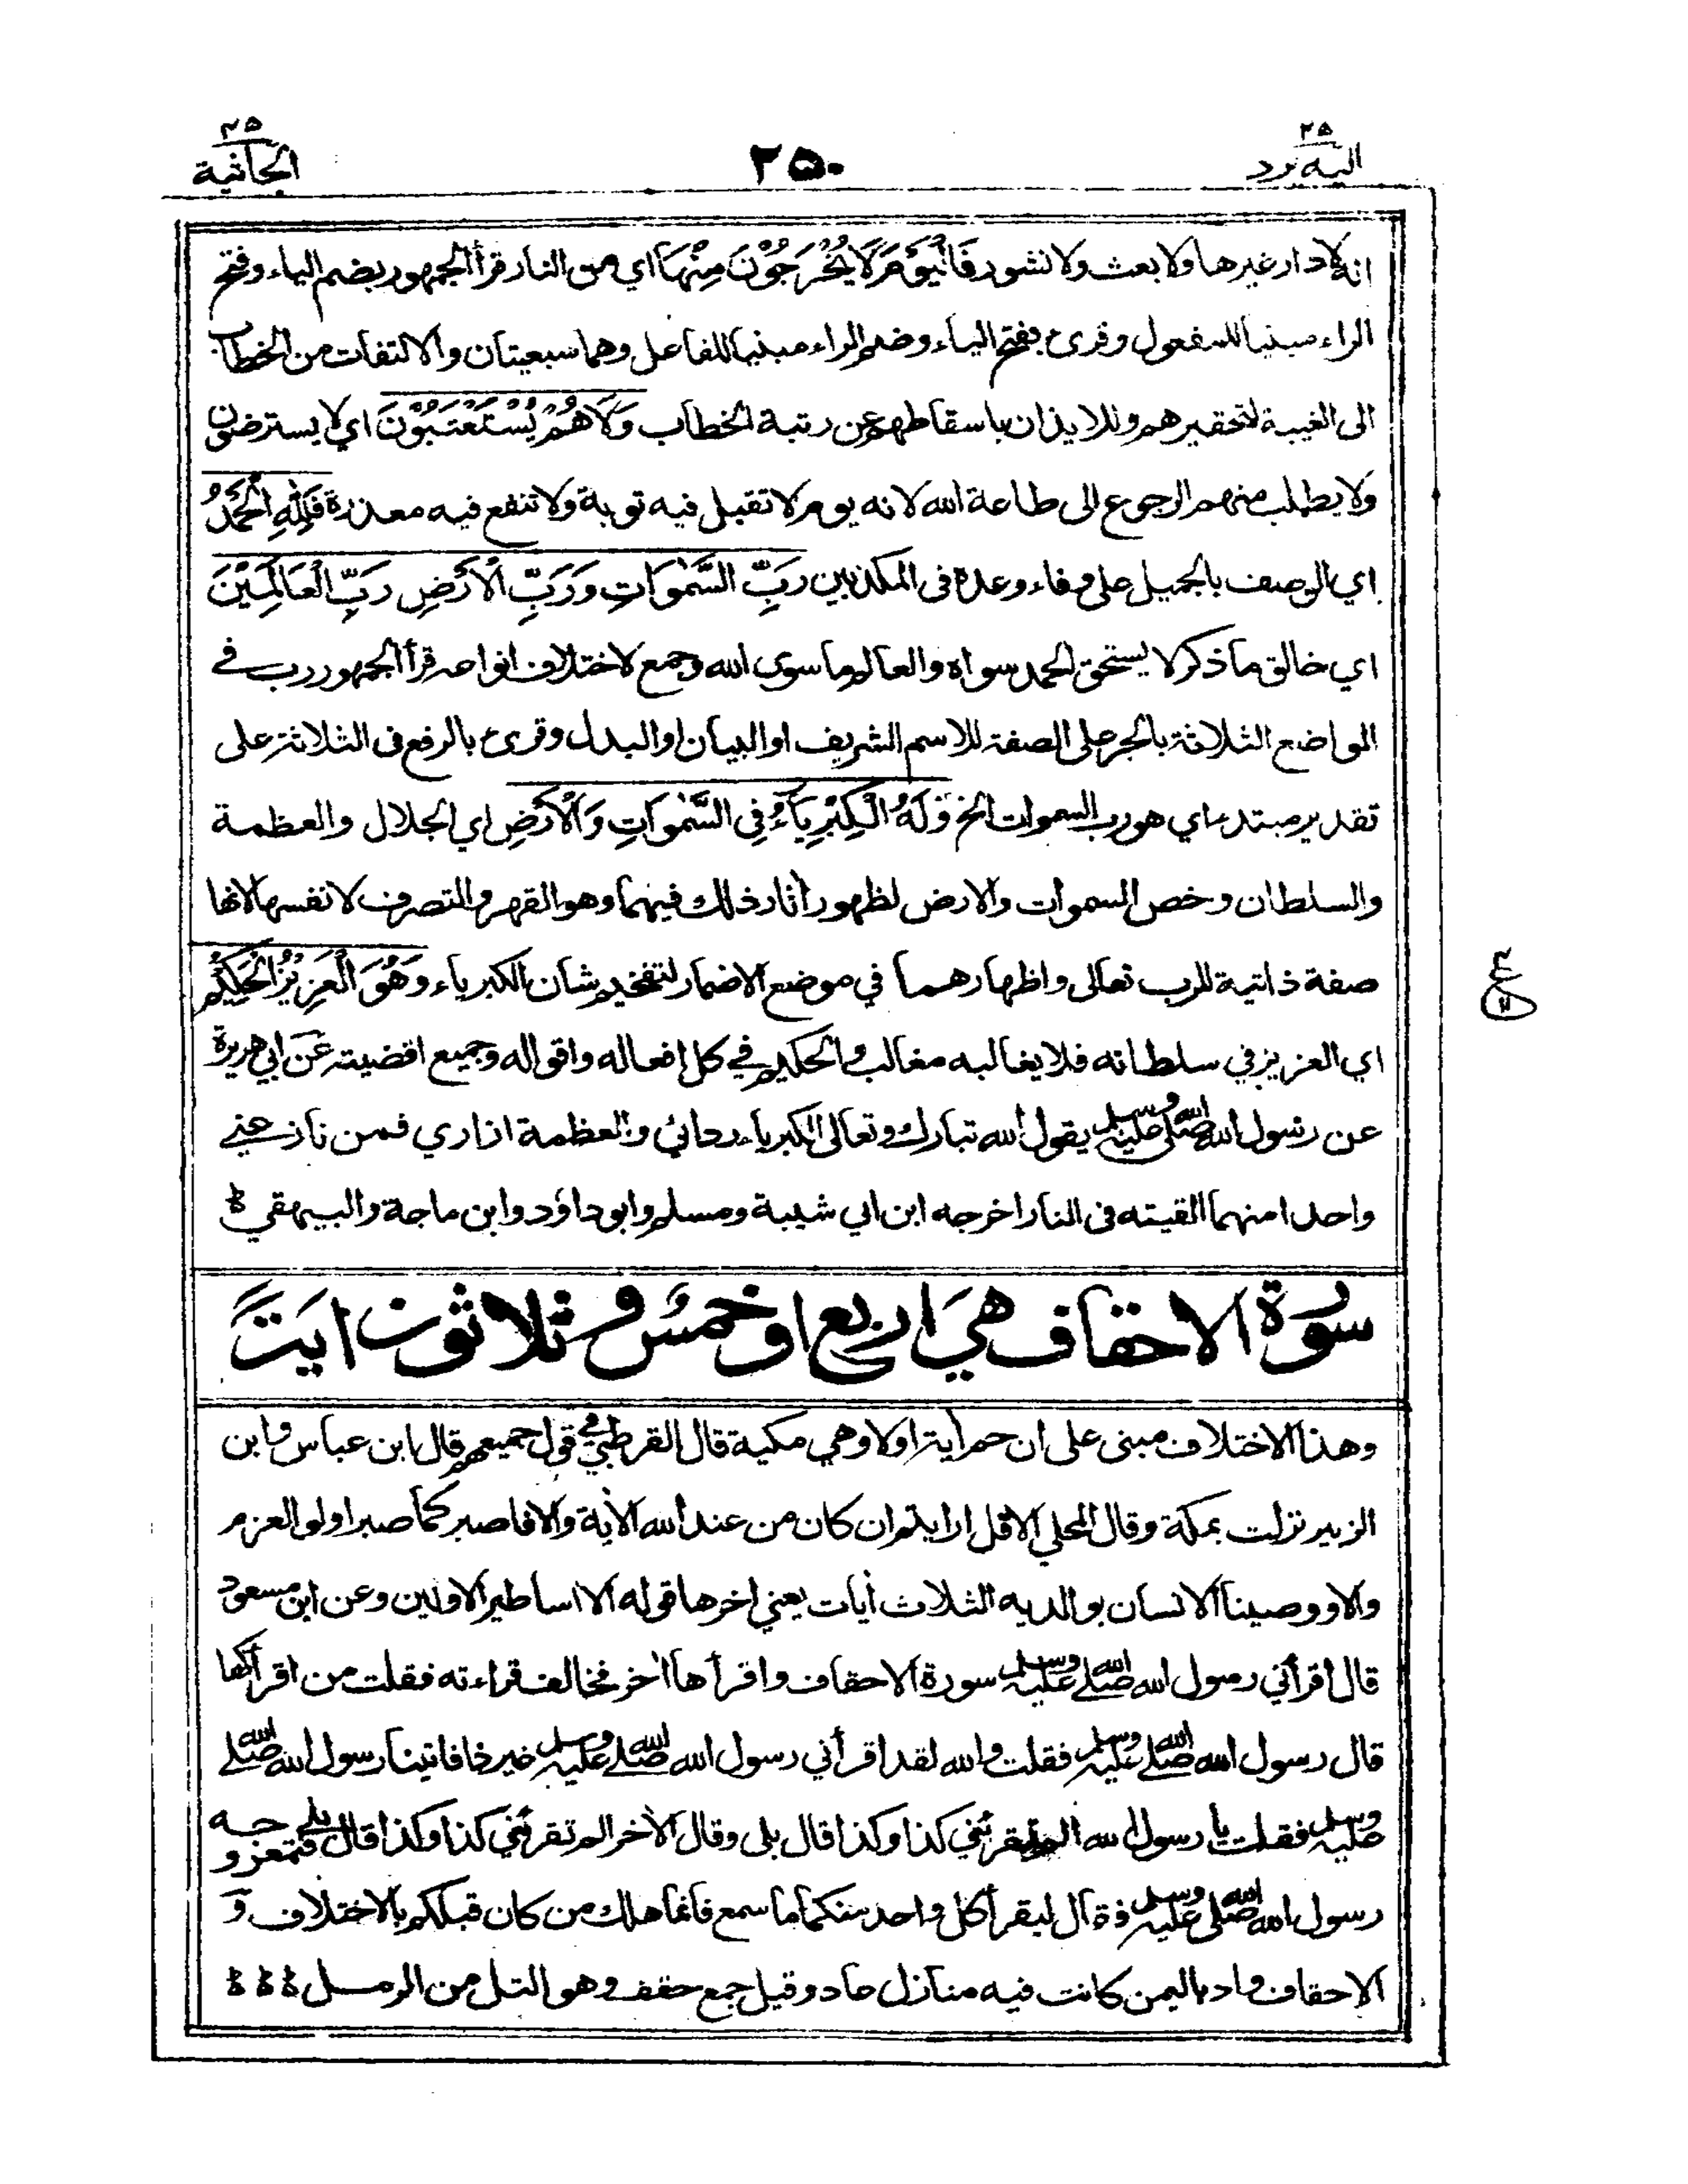 اليه يرد ٢٥
٢٥٠
الجاثية ٢٥
انه لا دار غيرها ولا بعث ولا نشور فَالْيَوْمَ لَا يُخْرَجُوْنَ مِنْهَا اي من النار قرأ الجمهور بضم الياء وفتح
الراء مبنيا للمفعول وقرئ بفتح الياء وضم الراء مبنيا للفاعل وهما سبعيتان والالتفات من الخطاب
الى الغيبة لتحقيرهم وللايذان باسقاطهم عن رتبة الخطاب وَلَا هُمْ يُسْتَعْتَبُوْنَ اي لا يسترضون
ولا يطلب منهم الرجوع الى طاعة الله لانه يوم لا تقبل فيه توبة ولا تنفع فيه معذرة فَلِلّٰهِ الْحَمْدُ
اي الوصف بالجميل على وفاء وعده فى المكذبين رَبِّ السَّمٰوَاتِ وَرَبِّ الْاَرْضِ رَبِّ الْعَالَمِيْنَ
اي خالق ما ذكر لا يستحق الحمد سواه والعالم ما سوى الله وجمع لاختلاف انواعه قرأ الجمهور رب في
المواضع الثلاثة بالجر على الصفة للاسم الشريف او البيان او البدل وقرئ بالرفع فى الثلاثة على
تقدير مبتدء اي هو رب السموات الخ وَلَهُ الْكِبْرِيَآءُ فِى السَّمٰوَاتِ وَالْاَرْضِ اي الجلال والعظمة
والسلطان وخص السموات والارض لظهور أثار ذلك فيهما وهو القهر والتصرف لا نفسها لانها
صفة ذاتية للرب تعالى واظهارهما في موضع الاضمار لتفخيم شان الكبرياء وَهُوَ الْعَزِيْزُ الْحَكِيْمُ
اي العزيز في سلطانه فلا يغالبه مغالب والحكيم في كل افعاله واقواله وجميع اقضيته عن ابي هريرة
عن رسول الله صلى الله عليه وسلم يقول الله تبارك وتعالى الكبرياء ردائي والعظمة ازاري فمن نازعني
واحدا منهما القيته فى النار اخرجه ابن ابي شيبة ومسلم وابو داؤد وابن ماجة والبيهقي
ع
سورة الاحقاف هي اربع او خمس وثلاثون اية
وهذا الاختلاف مبنى على ان حم أية او لا وهي مكية قال القرطبي في قول جميعهم قال ابن عباس وابن
الزبير نزلت بمكة وقال المحلي الا قل ارايتم ان كان من عند الله الأية والا فاصبر كما صبر اولو العزم
والا ووصينا الانسان بوالديه الثلاث أيات يعني اخرها قوله الا اساطير الاولين وعن ابن مسعود
قال اقرأني رسول الله صلى الله عليه وسلم سورة الاحقاف واقرأها أخر فخالف قراءته فقلت من اقرأكها
قال رسول الله صلى الله عليه وسلم فقلت والله لقد اقرأني رسول الله صلى الله عليه وسلم غير ذا فاتينا رسول الله صلى الله
عليه وسلم فقلت يا رسول الله الم تقرئني كذا وكذا قال بلى وقال الأخر الم تقرئني كذا وكذا قال بلى فتمعر وجه
رسول الله صلى الله عليه وسلم فقال ليقرأ كل واحد منكما ما سمع فانما هلك من كان قبلكم بالاختلاف و
الاحقاف واد باليمن كانت فيه منازل عاد وقيل جمع حقف وهو التل من الرمل